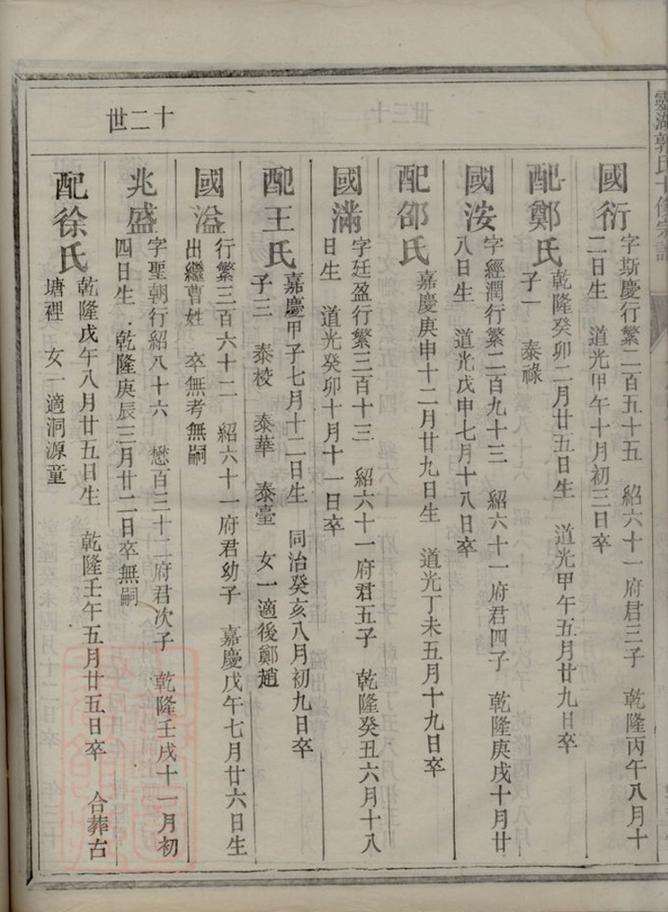 十二世
國衍
字斯慶行繁二百五十五　紹六十一府君三子　乾隆丙午八月十
二日生　道光甲午十月初三日卒
配鄭氏
乾隆癸卯二月廿五日生　道光甲午五月廿九日卒
子一　泰祿
國洝
字經潤行繁二百九十三　紹六十一府君四子　乾隆庚戌十月廿
八日生　道光戊申七月十八日卒
配邵氏
嘉慶庚申十二月廿九日生　道光丁未五月十九日卒
國滿
字廷盈行繁三百十三　紹六十一府君五子　乾隆癸丑六月十八
日生　道光癸卯十月十一日卒
配王氏
嘉慶甲子七月十二日生　同治癸亥八月初九日卒
子三　泰梭　泰華　泰臺　女一適後鄭趙
國溢
行繁三百六十二　紹六十一府君幼子　嘉慶戊午七月廿六日生
出繼曹姓　卒無考無嗣
兆盛
字聖朝行紹八十六　懋百三十二府君次子　乾隆壬戌十一月初
四日生　乾隆庚辰三月廿二日卒無嗣
配徐氏
乾隆戊午八月廿五日生　乾隆壬午五月廿五日卒　合葬古
塘裡　女一適洞源童